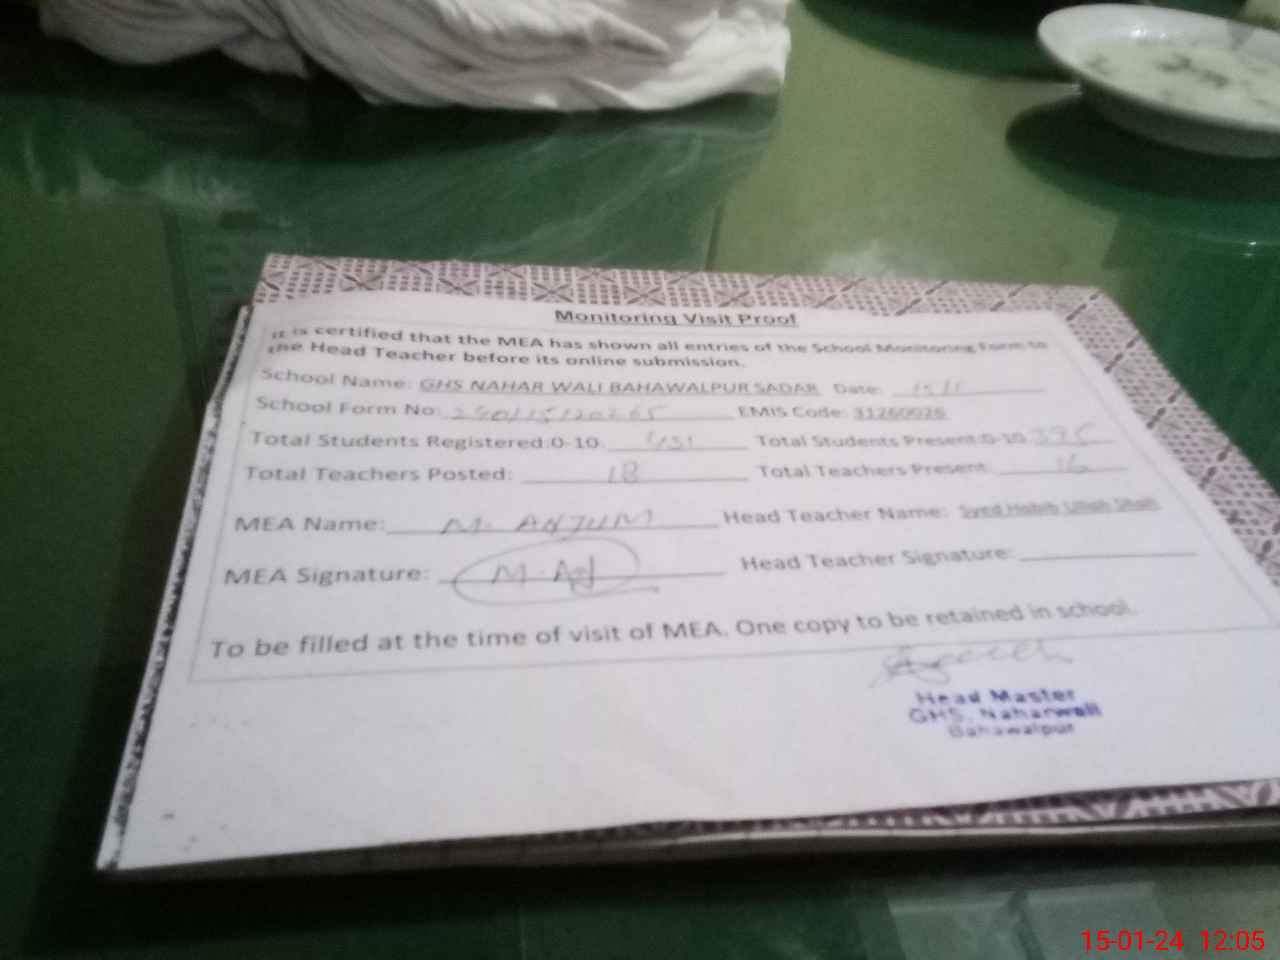 Monitoring Visit Proof
It is certified that the MEA has shown all entries of the School Monitoring Form to
the Head Teacher before its online submission.
School Name: GHS NAHAR WALI BAHAWALPUR SADAR Date: 15/1
School Form No: EMIS Code: 31260026
Total Students Registered:0-10. 431 Total Students Present:0-10.
Total Teachers Posted: 18 Total Teachers Present: 16
MEA Name: M. ANJUM Head Teacher Name: Syed Habib Ullah Shah
MEA Signature: M. Anj Head Teacher Signature:
To be filled at the time of visit of MEA. One copy to be retained in school.
Head Master
GHS, Naharwali
Bahawalpur
15-01-24 12:05